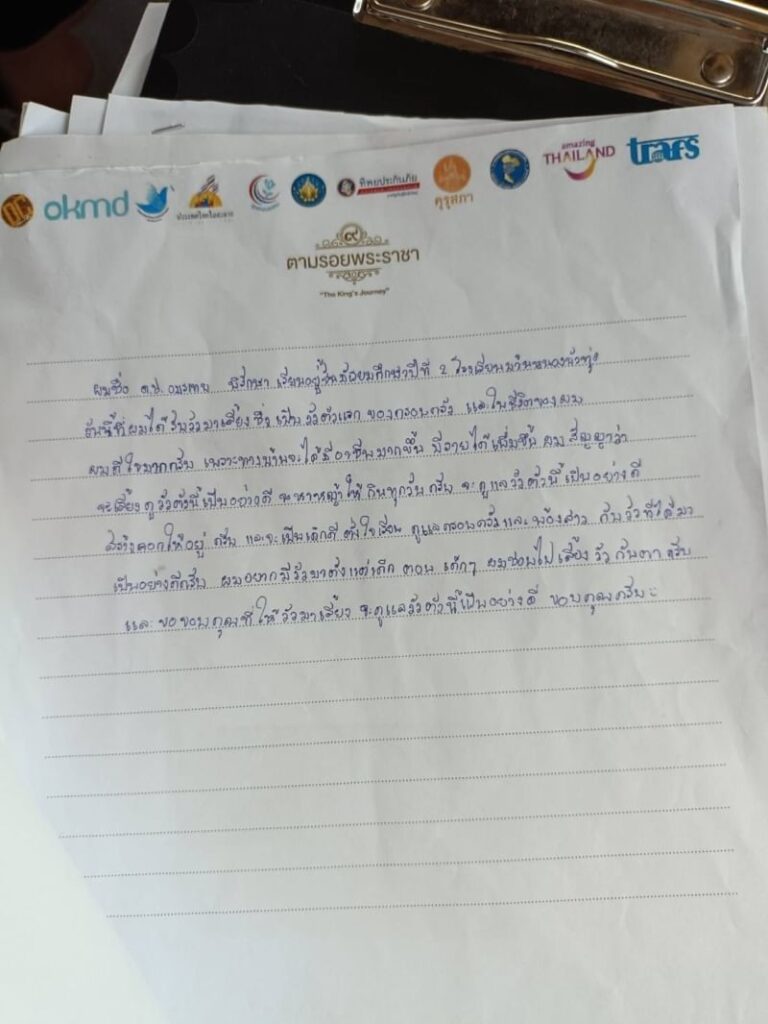 okmd
ทิพยประกันภัย
คุรุสภา
amazing
THAILAND
trafs
๙
ตามรอยพระราชา
"The King's Journey"
ผมชื่อ ด.ช. เรียนอยู่ชั้นมัธยมศึกษาปีที่ 2
วันนี้ที่ผมได้รับวัวมาเลี้ยงซึ่งเป็นวัวตัวแรก ของครอบครัว และในชีวิตของผม
ผมดีใจมากครับ เพราะทางบ้านจะได้มีอาชีพมากขึ้น มีรายได้เพิ่มขึ้น ผมสัญญาว่า
จะเลี้ยงดูวัวตัวนี้เป็นอย่างดี จะหาหญ้าให้กินทุกวันครับ จะดูแลวัวตัวนี้เป็นอย่างดี
สร้างคอกให้อยู่ ครับ และจะเป็นเด็กดี ตั้งใจเรียน ดูแลครอบครัวและน้องสาว กับวัวที่ได้มา
เป็นอย่างดีครับ ผมอยากมีวัวมาตั้งแต่เด็ก ตอน เด็กๆ ผมชอบไปเลี้ยงวัวกับตา ครับ
และขอขอบคุณที่ให้วัวมาเลี้ยง จะดูแลวัวตัวนี้เป็นอย่างดี ขอบคุณครับ